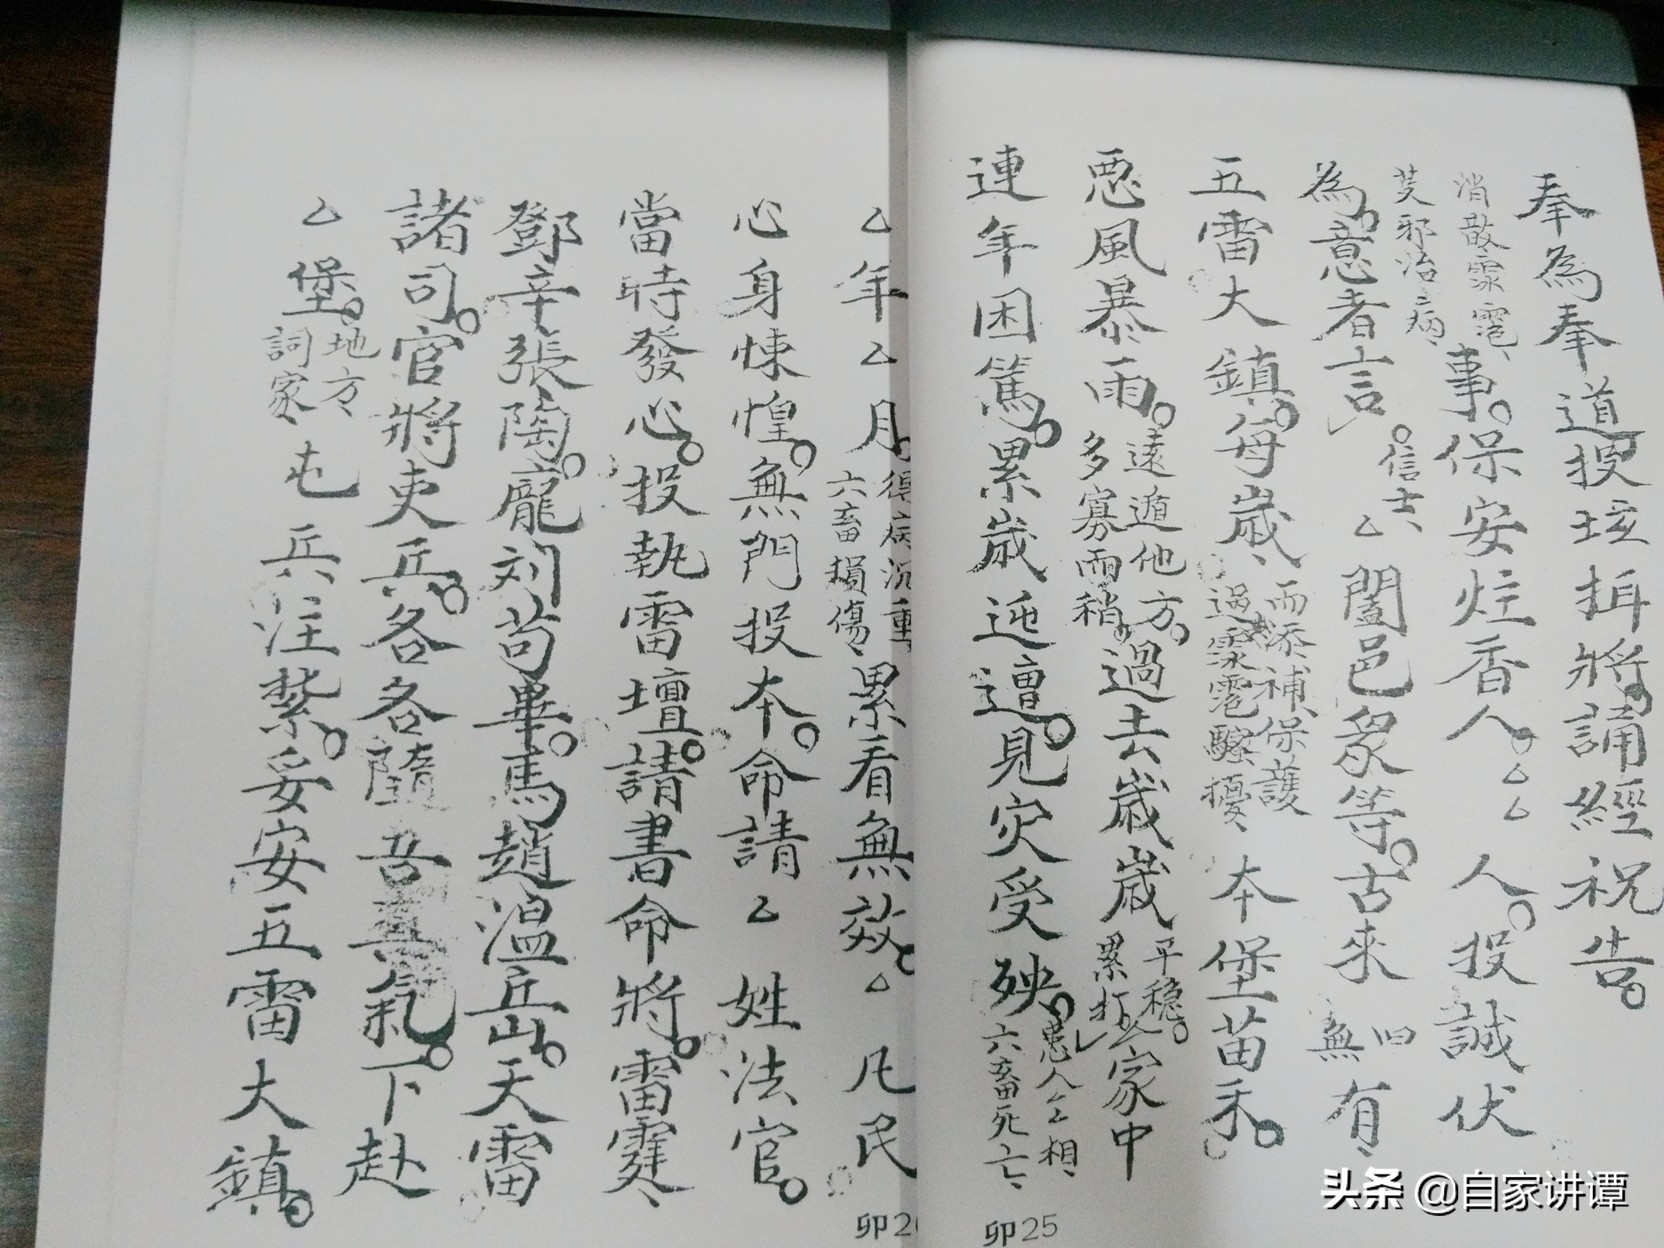 奉為奉道投坛拜將誦經祝告
消散霖雹、
芟邪治病、
事保安炷香人厶厶人投誠伏
為意者言信士、厶闔邑眾等古來
旧
無
有、
五雷大鎮每歲、
而添補、保護
過霖雹騷擾、
本堡苗禾
惡風暴雨
遠遁他方
多寡而稍
過去歲歲
平穩
累打
家中
連年困篤累歲迍邅見灾受殃
患人厶相、
六畜死亡、
卯25
厶年厶月
得病沉重、
六畜損傷、
累看無效厶凡民
心身悚惶無門投本命請厶姓法官
當時發心投執雷壇請書命將雷霆、
鄧辛張陶龐刘苟畢馬趙溫丘山天雷
諸司官將吏兵各各隨吾真氣下赴
厶堡
地方、
詞家、
屯兵注紮妥安五雷大鎮
头条 @自家讲谭